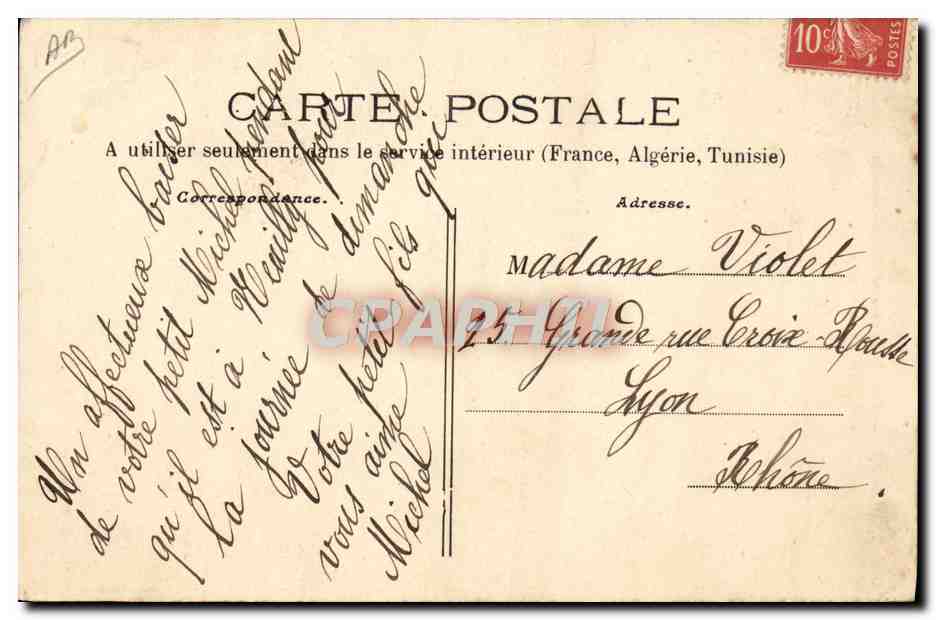 AR
10c
POSTES
CARTE POSTALE
A utiliser seulement dans le service intérieur (France, Algérie, Tunisie)
Correspondance.
Adresse.
Un affectueux baiser
de votre petit Michel pendant
qu'il est à Neuilly pour
la journée de dimanche
Votre petit fils qui
vous aime
Michel
Madame Violet
95 Grande rue Croix-Rousse
Lyon
Rhône.
CPAPHIL